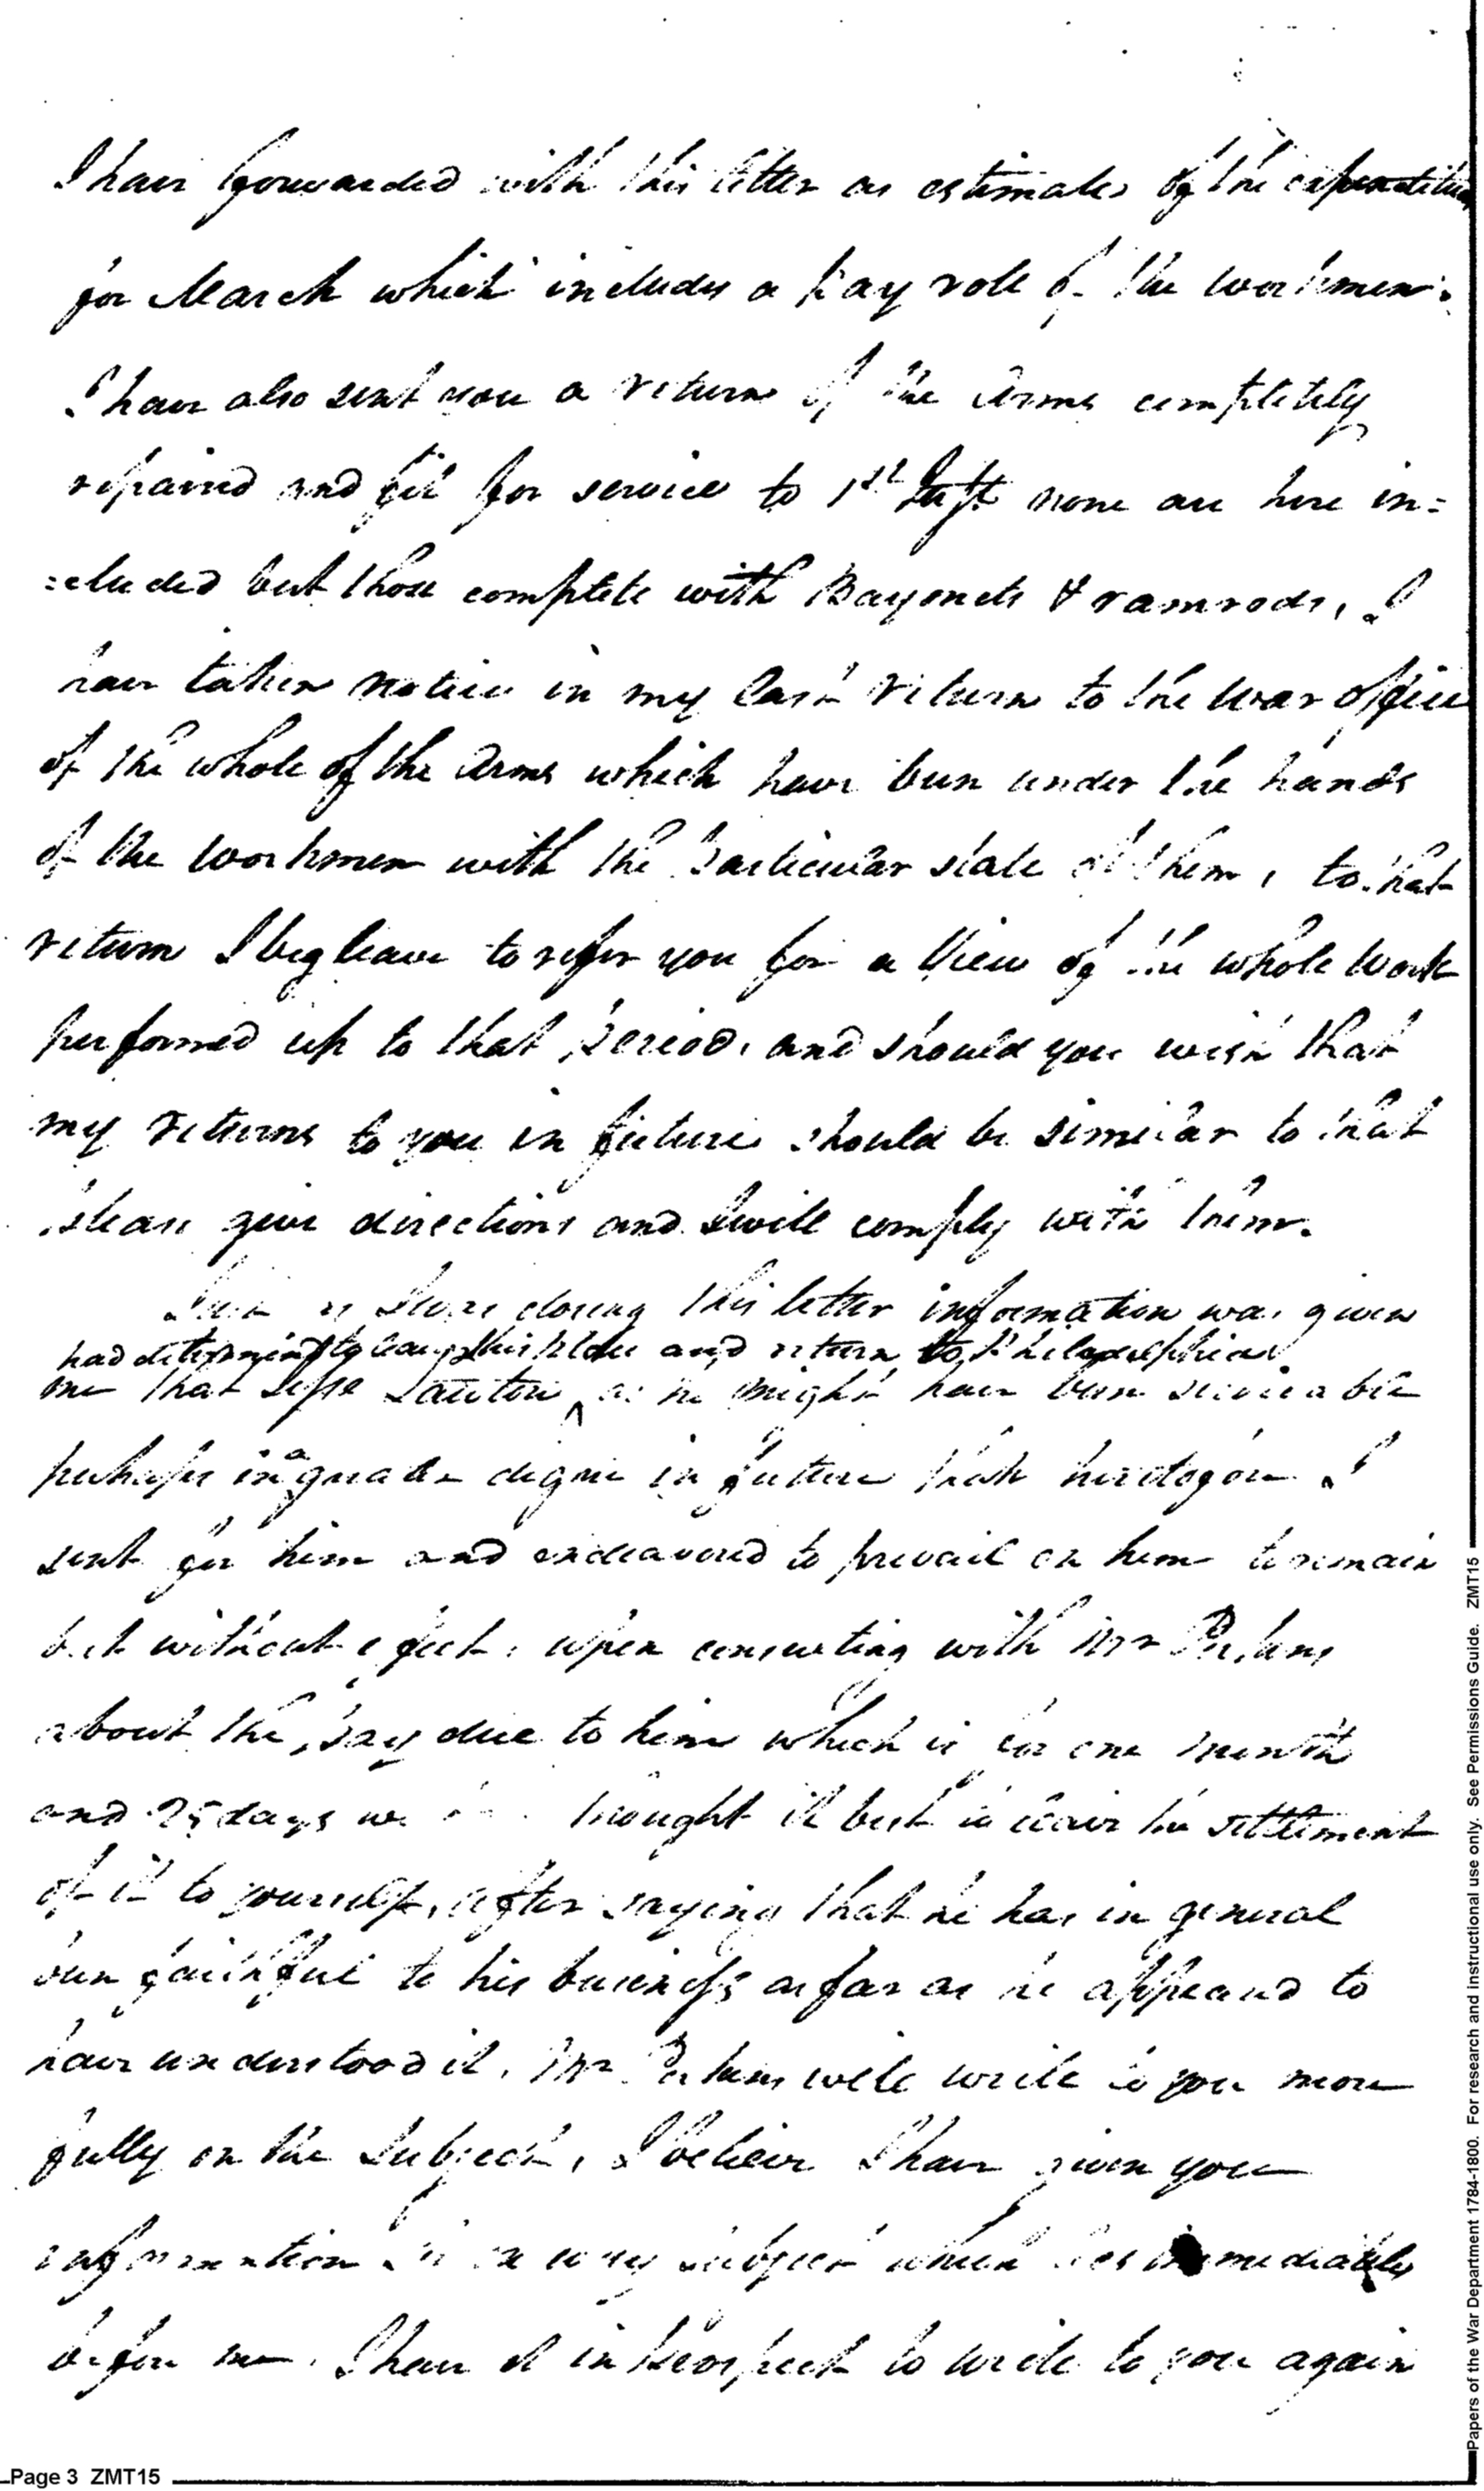 I have forwarded with this letter an estimate of the expenditure
for March which includes a pay role of the workmen.
I have also sent you a return of the Arms completely
repaired and fit for service to 1st none are here in=
=cluded but those complete with Bayonets & ramrods, I
have taken notice in my last return to the War office
of the whole of the Arms which have been under the hands
of the workmen with the particular state of them, to that
return I beg leave to refer you for a View of the whole work
performed up to that period, and should you wish that
my returns to you in future should be similar to that
please give directions and I will comply with them.
Just as I was closing this letter information was given
had determined to leave this place and return to Philadelphia
me that ^ as he might have been serviceable
perhaps in a greater degree in future than heretofore I
sent for him and endeavored to prevail on him to remain
but without effect, upon consulting with Mr Perkins
about the pay due to him which is for one month
and 25 days we thought it best to leave the settlement
of it to yourself, after saying that he has in general
been faithful to his business as far as he appeared to
have understood it, Mr Perkins will write to you more
fully on the Subject, I believe I have given you
information on every subject which lies immediately
before me. I have it in prospect to write to you again
Page 3 ZMT15
Papers of the War Department 1784-1800. For research and instructional use only. See Permissions Guide. ZMT15